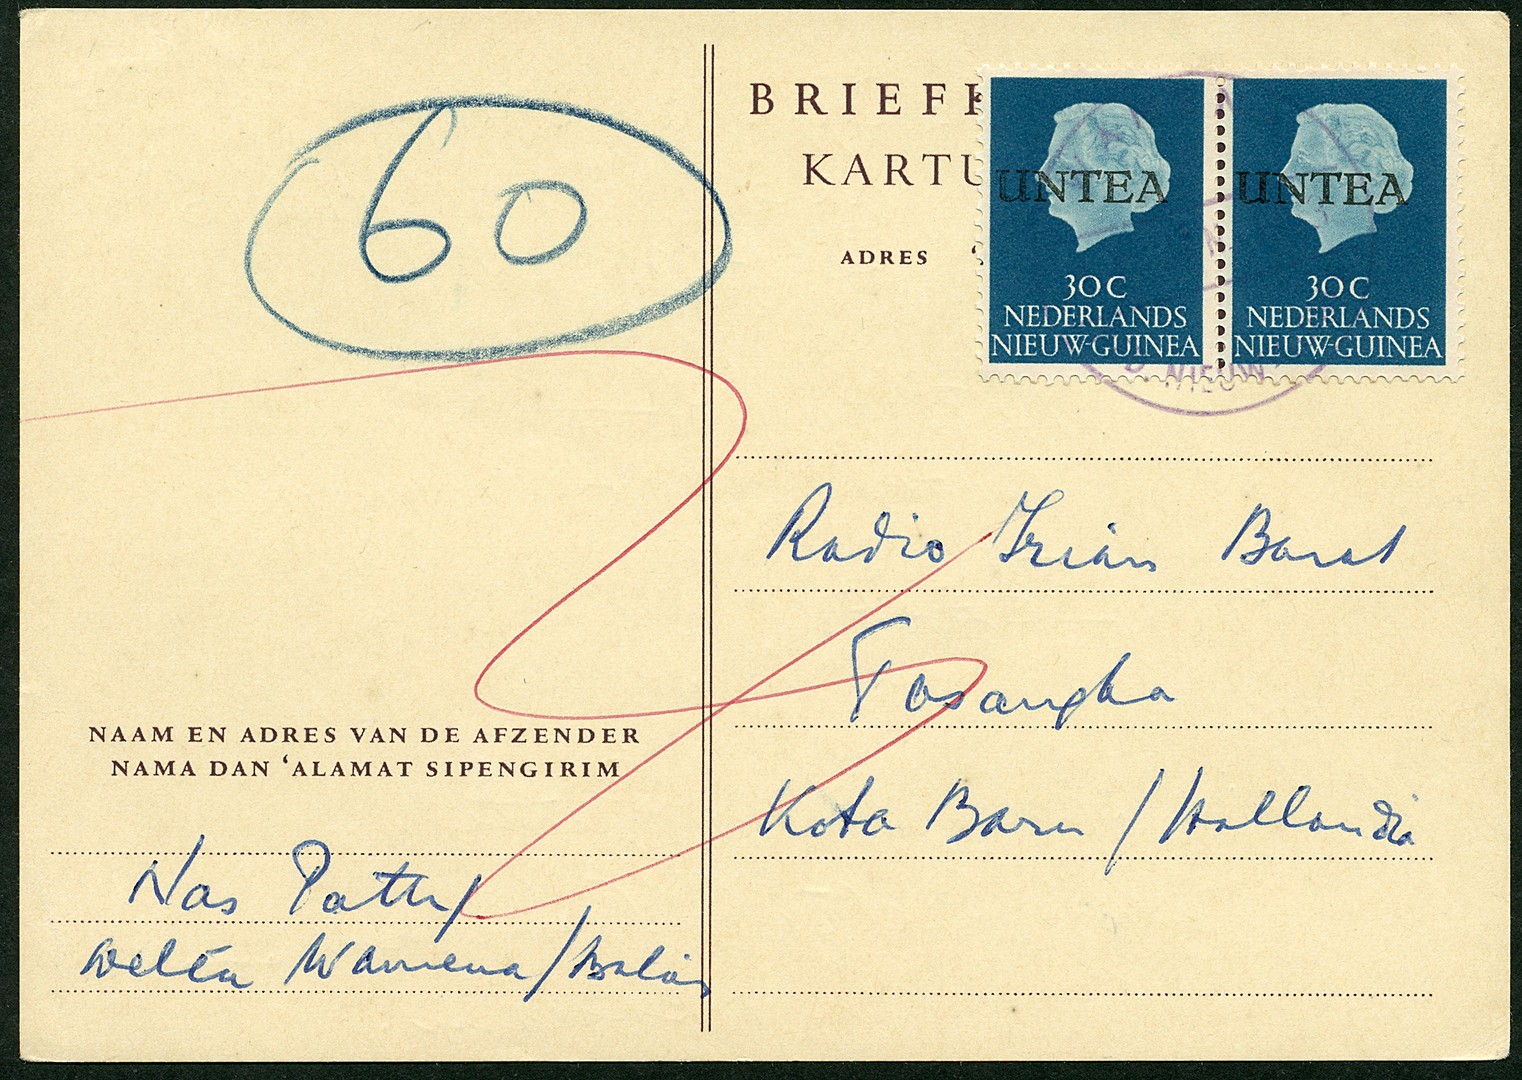 60
BRIEFK
KARTU
ADRES
UNTEA
30 C
NEDERLANDS
NIEUW-GUINEA
UNTEA
30 C
NEDERLANDS
NIEUW-GUINEA
D. NIEUW-
Radio Irian Barat
Tasangka
Kota Baru / Hollandia
NAAM EN ADRES VAN DE AFZENDER
NAMA DAN ‘ALAMAT SIPENGIRIM
Nas Patty
Wamena /